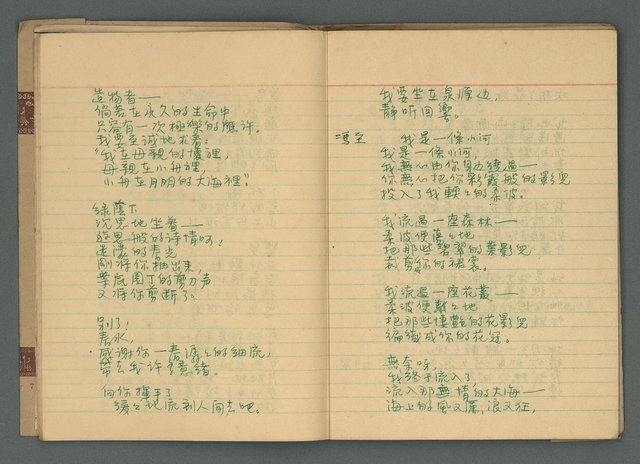 造物者——
倘若在永久的生命中
只容有一次極樂的應許。
我要至誠地求着：
“我在母親的懷裡，
母親在小舟裡，
小舟在月明的大海裡”。
綠蔭下
沉思地坐着——
遊絲般的詩情呵！
迷濛的春光
剛將你抽出來，
葉底園丁的剪刀声
又將你剪斷了。
別了！
春水，
感謝你一春潺々的細流，
帶去我許多意緒。
向你揮手了
緩々地流到人间去吧。
我要坐在泉源边，
靜听回響。
馮至 我是一條小河
我是一條小河，
我無心由你身边繞過——
你無心把你彩霞般的影兒
投入了我軟々的柔波。
我流過一座森林——
柔波便蕩々地
把那些碧翠的葉影兒
裁剪你的裙裳。
我流過一座花叢——
柔波便粼々地
把那些悽艷的花影兒
編織成你的花冠。
無奈呀，
我終于流入了
流入那無情的大海——
海上的風又厲，浪又狂，
7